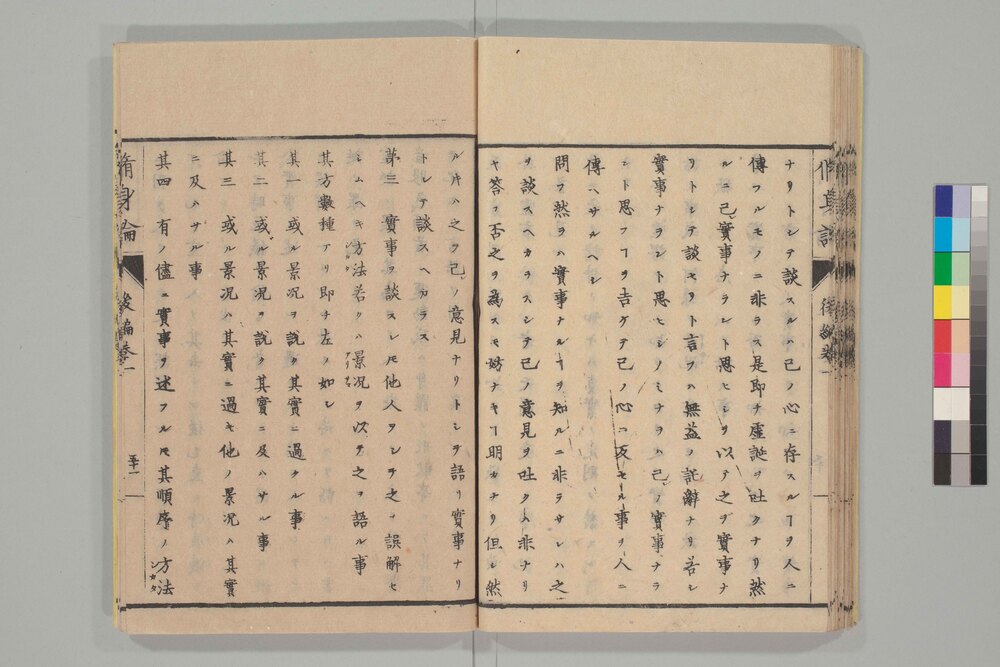 ナリトシテ談スルハ己ノ心ニ存スルヿヲ人ニ
傳フルモノニ非ラス是即チ虚誕ヲ吐クナリ然
ルニ己實事ナラント思ヒシヲ以テ之ヲ實事ナ
リトシテ談セリト言フハ無益ノ託辭ナリ若シ
實事ナラント思ヒシノミナラハ己ノ實事ナラ
ント思フヿヲ吉ケテ己ノ心ニ反セル事ヲ人ニ
傳ヘサルヘシ
問フ然ラハ實事ナルヿヲ知ルニ非ラサレハ之
ヲ談スヘカラスシテ己ノ意見ヲ吐クハ非ナリ
ヤ答フ否之ヲ為スモ妨ナキヿ明カナリ但シ然
ル片ハ之ヲ己ノ意見ナリトシテ語リ實事ナリ
トシテ談スヘカラス
第三 實事ヲ談スレ𪜈他人ヲシテ之ヲ誤解セ
シムヘキ方法若クハ景况ヲ以テ之ヲ語ル事
其方數種アリ即チ左ノ如シ
其一 或ル景况ヲ説ク其實ニ過クル事
其二 或ル景况ヲ説ク其實ニ及ハサル事
其三 或ル景况ハ其實ニ過キ他ノ景况ハ其實
ニ及ハサル事
其四 有ノ儘ニ實事ヲ述フル𪜈其順序ノ方法
脩身論 後編卷一 五十一